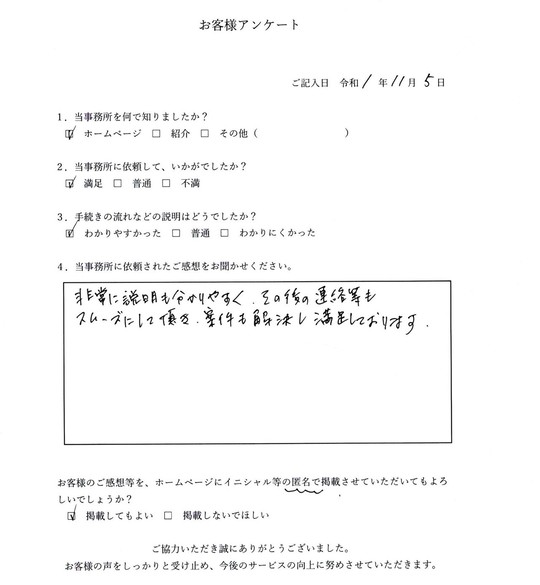 お客様アンケート
ご記入日 令和1年11月5日
1．当事務所を何で知りましたか？
☑ ホームページ □ 紹介 □ その他（ ）
2．当事務所に依頼して、いかがでしたか？
☑ 満足 □ 普通 □ 不満
3．手続きの流れなどの説明はどうでしたか？
☑ わかりやすかった □ 普通 □ わかりにくかった
4．当事務所に依頼されたご感想をお聞かせください。
非常に説明も分かりやすく、その後の連絡等も
スムーズにして頂き、案件も解決し満足しております。
お客様のご感想等を、ホームページにイニシャル等の匿名で掲載させていただいてもよろ
しいでしょうか？
☑ 掲載してもよい □ 掲載しないでほしい
ご協力いただき誠にありがとうございました。
お客様の声をしっかりと受け止め、今後のサービスの向上に努めさせていただきます。